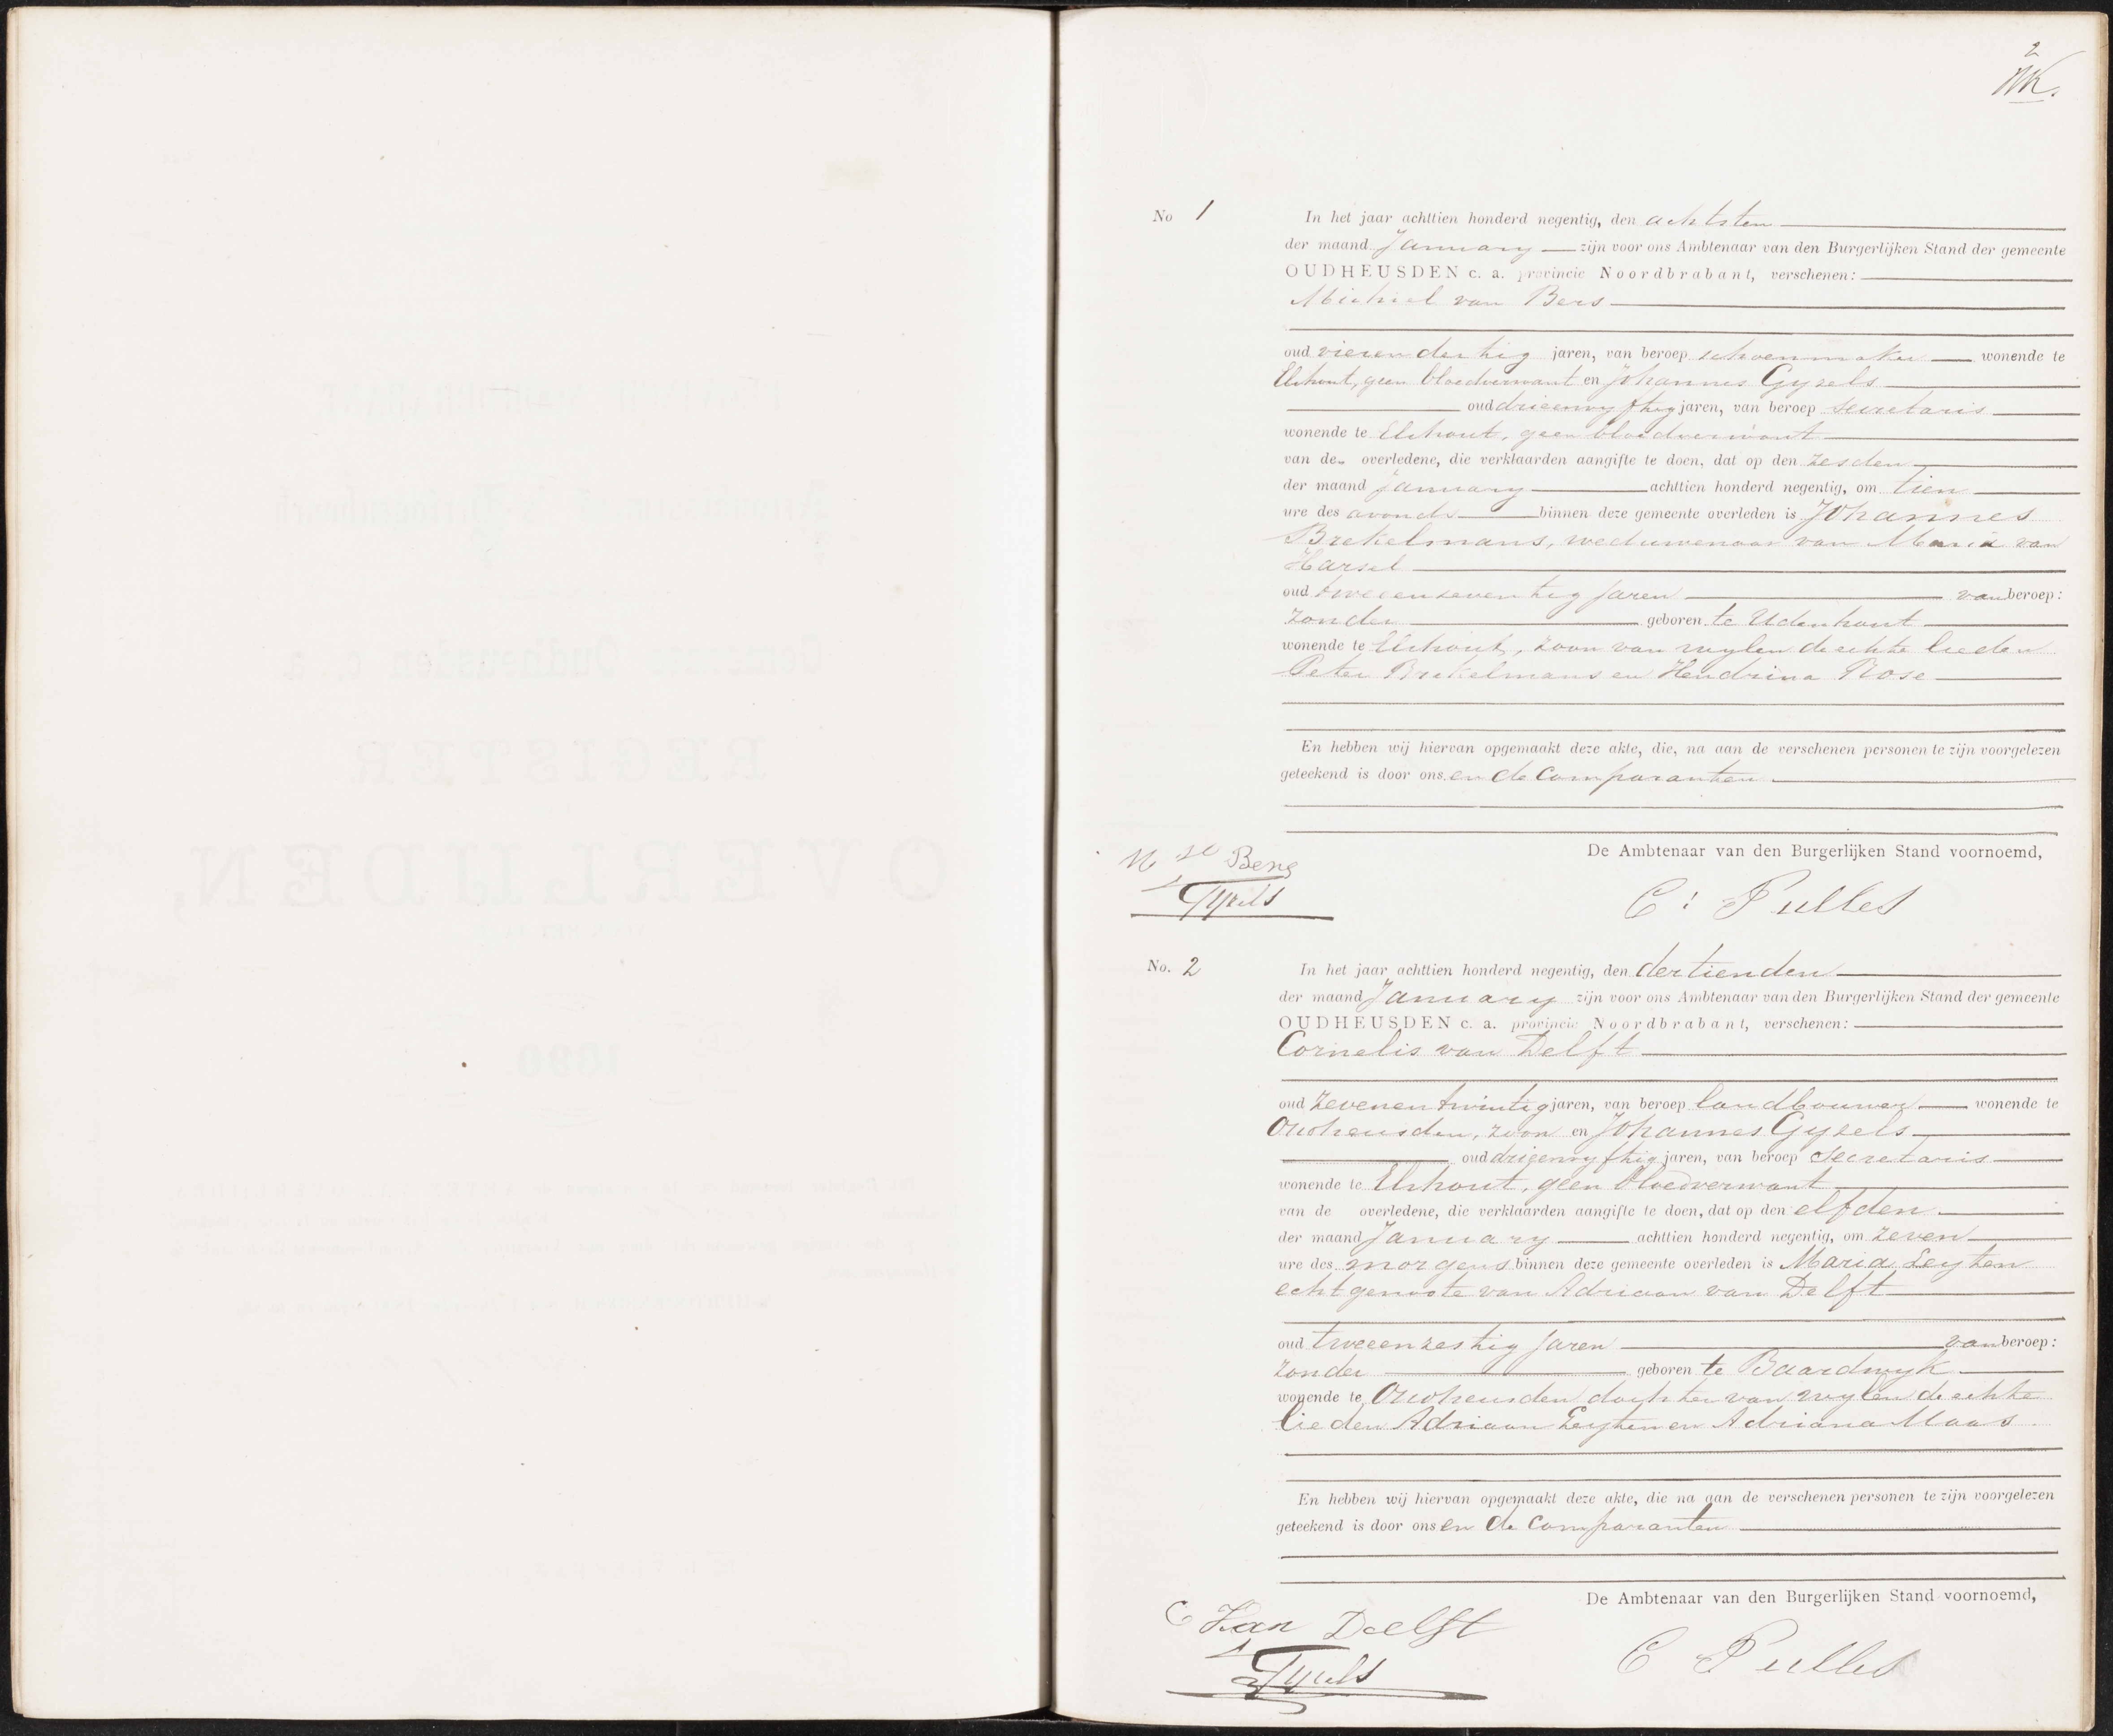 2
No 1
In het jaar achttien honderd negentig, den achtsten
der maand January zijn voor ons Ambtenaar van den Burgerlijken Stand der gemeente
OUDHEUSDEN c. a. provincie Noordbrabant, verschenen:
Michiel van Bers
oud vierendertig jaren, van beroep schoenmaker wonende te
Elshout, geen bloedverwant en Johannes Gyzels
oud drieenvyftig jaren, van beroep secretaris
wonende te Elshout, geen bloedverwant
van den overledene, die verklaarden aangifte te doen, dat op den zesden
der maand January achttien honderd negentig, om tien
ure des avonds binnen deze gemeente overleden is Johannes
Brekelmans, weduwenaar van Maria van
Harsel
oud tweeenzeventig jaren van beroep:
zonder geboren te Udenhout
wonende te Elshout, zoon van wylen de echte lieden
Peter Brekelmans en Hendrina Rose
En hebben wij hiervan opgemaakt deze akte, die, na aan de verschenen personen te zijn voorgelezen
geteekend is door ons en de comparanten
De Ambtenaar van den Burgerlijken Stand voornoemd,
Gyzels
C. Pulles
No. 2
In het jaar achttien honderd negentig, den dertienden
der maand January zijn voor ons Ambtenaar van den Burgerlijken Stand der gemeente
OUDHEUSDEN c. a. provincie Noordbrabant, verschenen:
Cornelis van Delft
oud zevenentwintig jaren, van beroep landbouwer wonende te
Oudheusden, zoon en Johannes Gyzels
oud drieenvyftig jaren, van beroep secretaris
wonende te Elshout, geen bloedverwant
van de overledene, die verklaarden aangifte te doen, dat op den elfden
der maand January achttien honderd negentig, om zeven
ure des morgens binnen deze gemeente overleden is Maria Leyten
echtgenoote van Adriaan van Delft
oud tweeenzestig jaren van beroep:
zonder geboren te Baardwyk
wonende te Oudheusden dochter van wylen de echte
lieden Adriaan Leyten en Adriana Maas
En hebben wij hiervan opgemaakt deze akte, die na aan de verschenen personen te zijn voorgelezen
geteekend is door ons en de comparanten
De Ambtenaar van den Burgerlijken Stand voornoemd,
C Van Delft
Gyzels
C Pulles